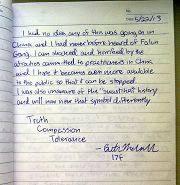 No.
Date 5/22/13
I had no idea any of this was going on in
China and I had never before heard of Falun
Gong. I am shocked and horrified by the
atrocities committed to practitioners in China
and I hope it becomes even more available
to the public so that it can be stopped.
I was also unaware of the "swastika" history
and will now view that symbol differently.
Truth
Compassion
Tolerance
17F